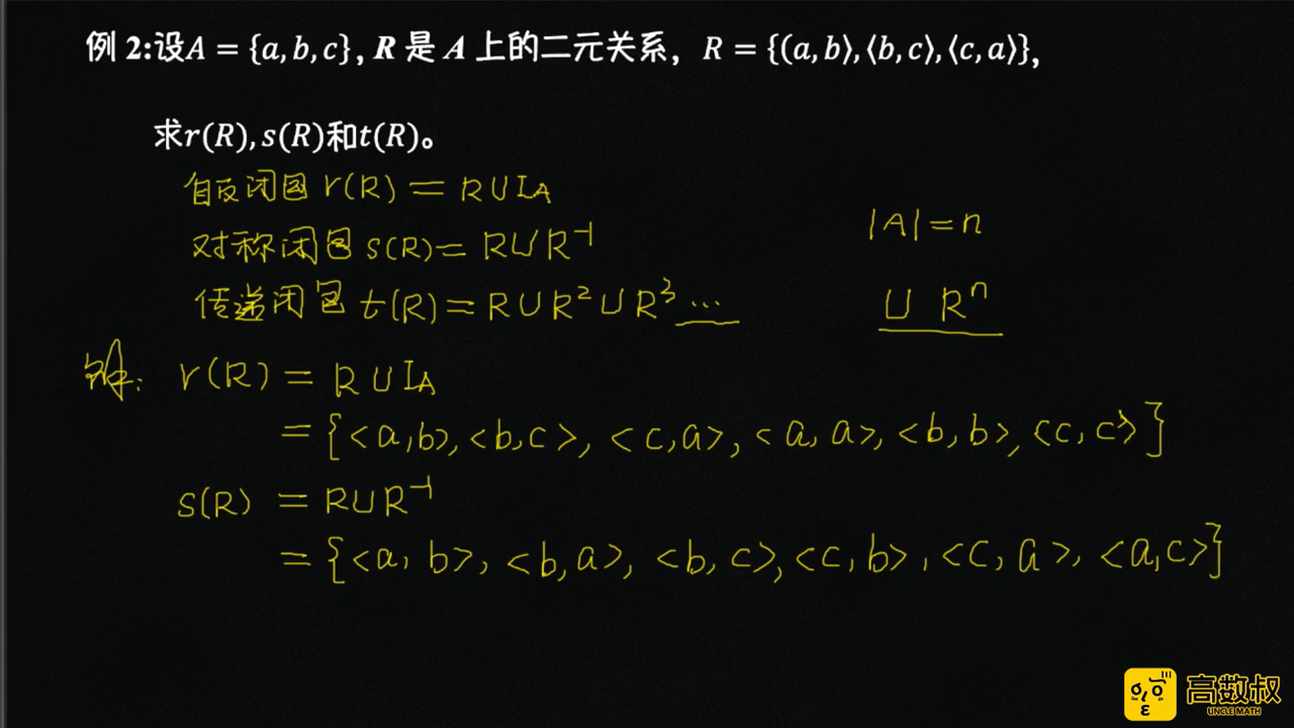 例 2:设A = {a, b, c}, R 是 A 上的二元关系，R = {(a, b⟩,⟨b, c⟩,⟨c, a⟩},
求r(R), s(R)和t(R)。
自反闭包 r(R) = R∪I_A
对称闭包 s(R) = R∪R⁻¹
|A| = n
传递闭包 t(R) = R∪R²∪R³ ...
∪ Rⁿ
解: r(R) = R∪I_A
= {<a,b>,<b,c>, <c,a>, <a,a>, <b,b>, <c,c>}
s(R) = R∪R⁻¹
= {<a, b>, <b,a>, <b,c>, <c,b>, <c,a>, <a,c>}
高数叔
UNCLE MATH